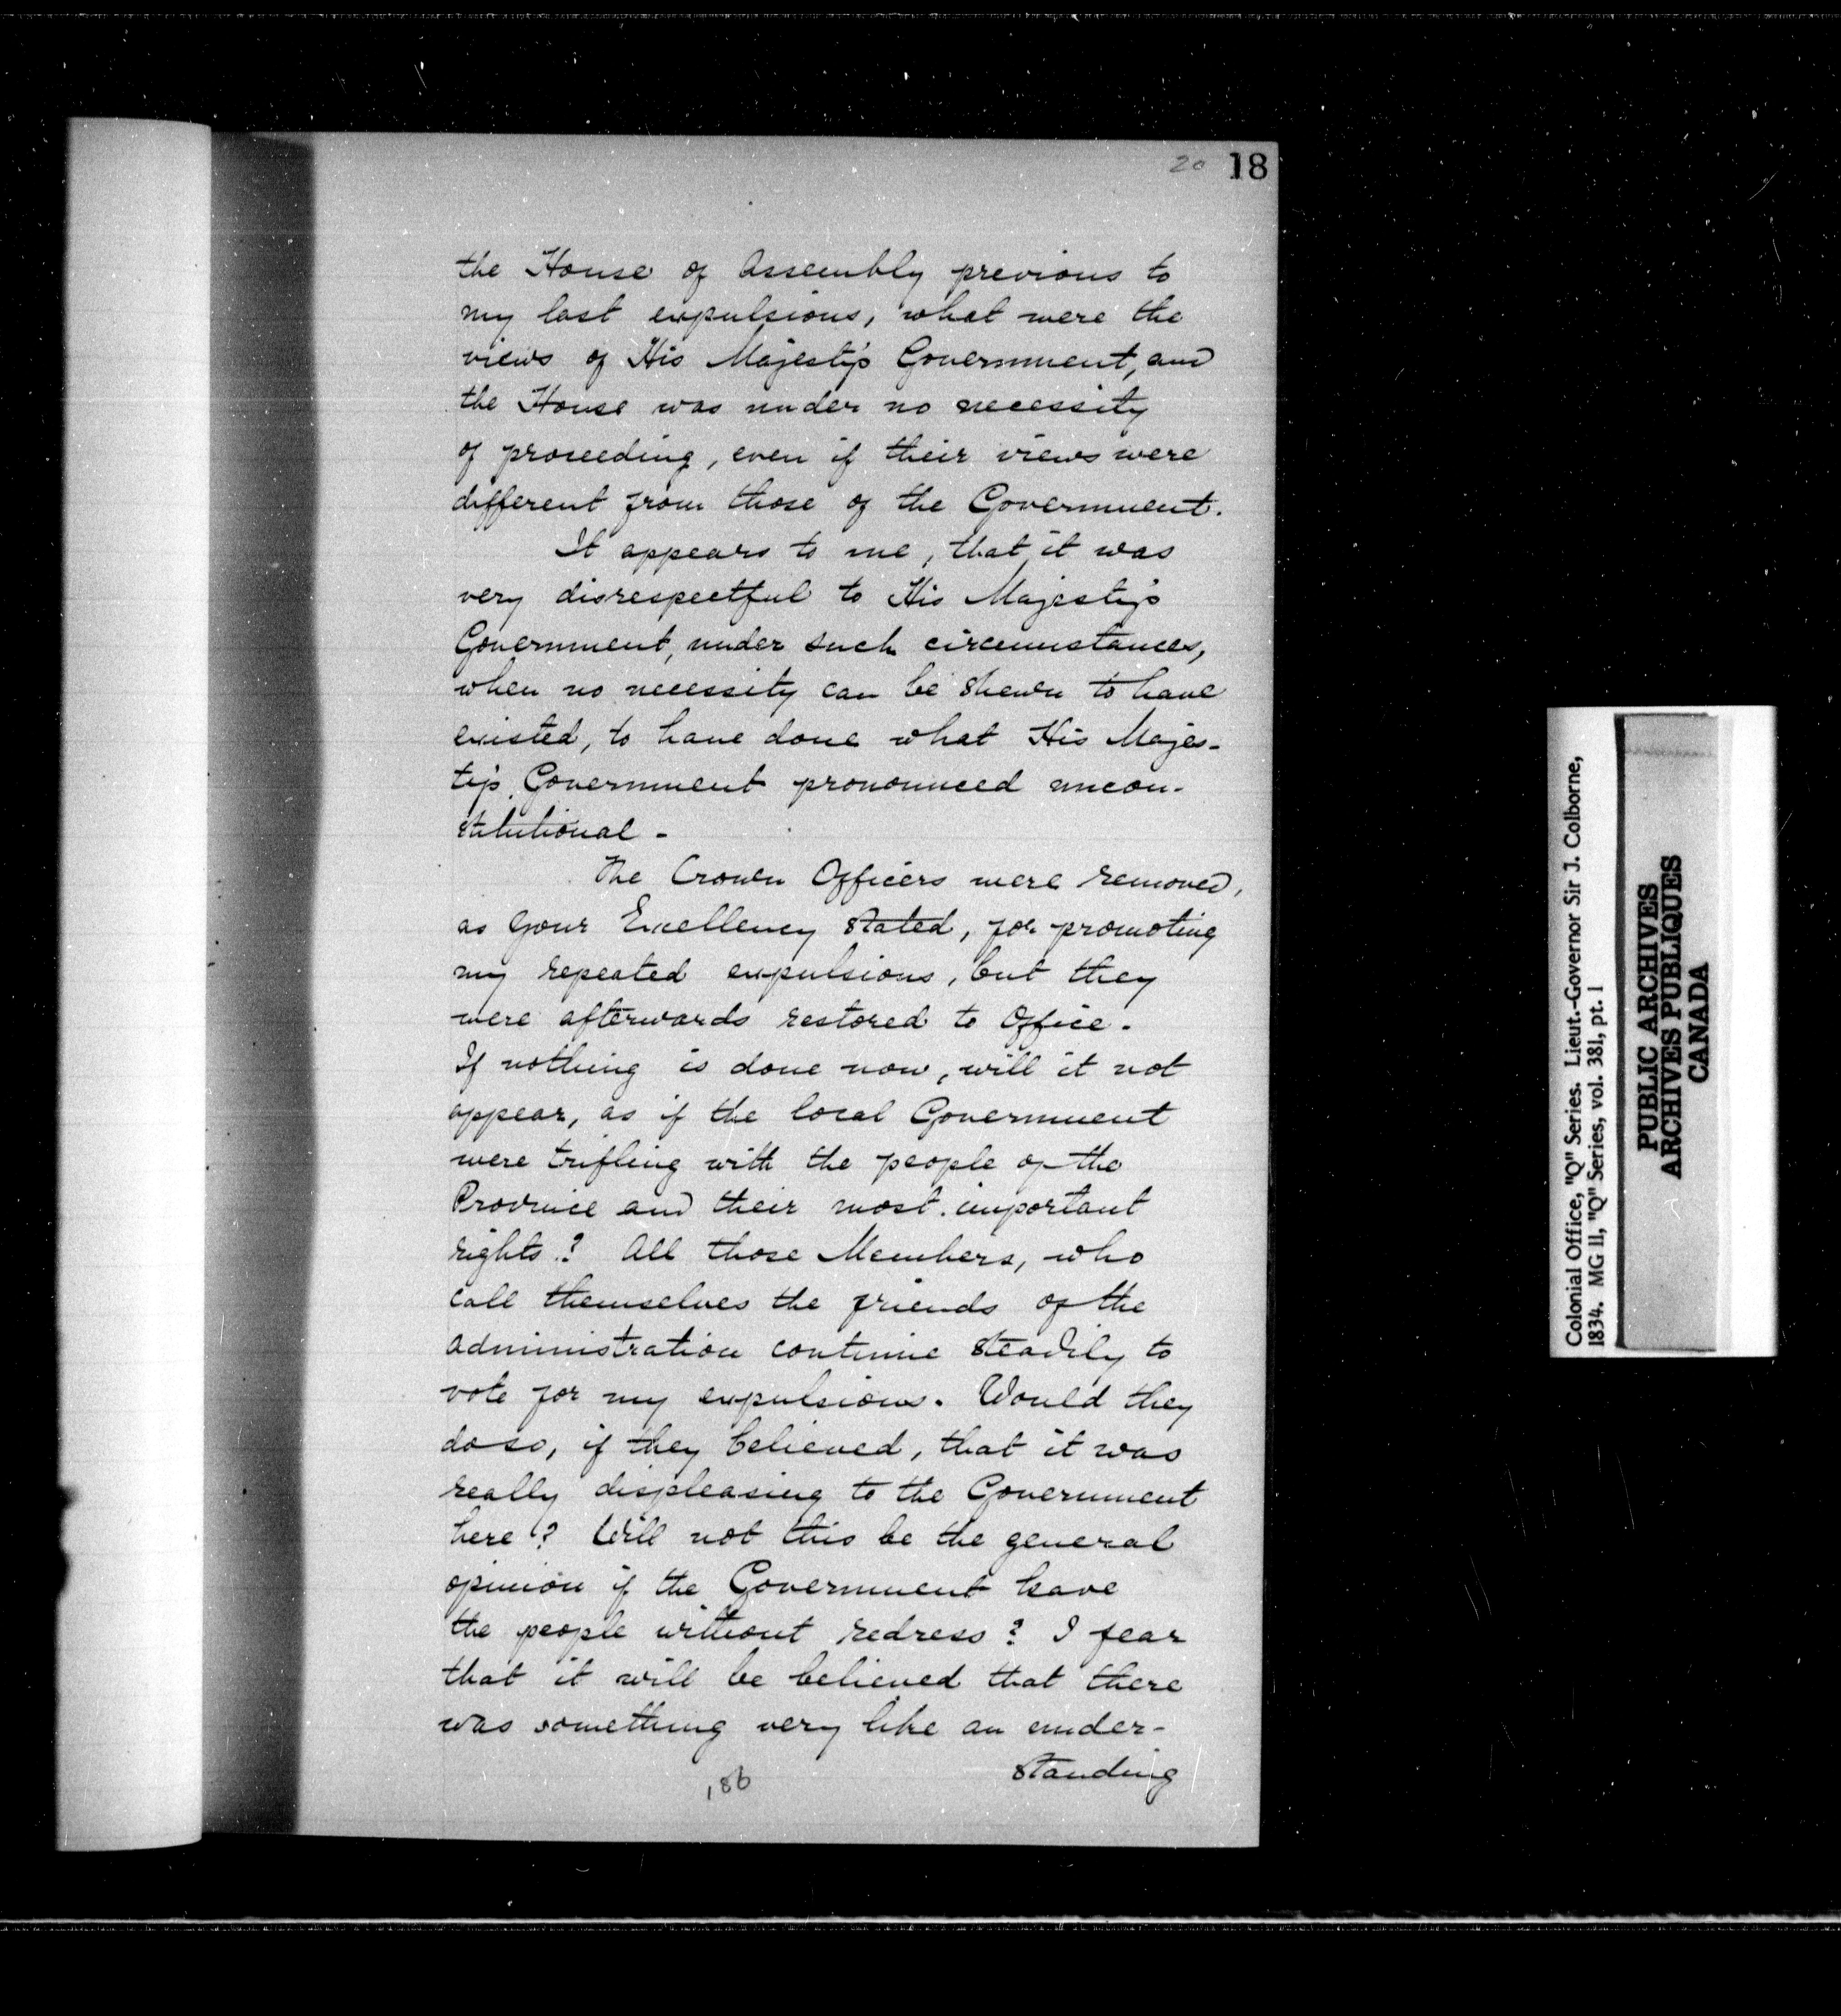 20 18
the House of Assembly previous to
my last expulsions, what were the
views of His Majesty's Government, and
the House was under no necessity
of proceeding, even if their views were
different from those of the Government.
It appears to me, that it was
very disrespectful to His Majesty's
Government, under such circumstances,
when no necessity can be shewn to have
existed, to have done what His Majes-
ty's Government pronounced uncon-
stitutional -
The Crown Officers were removed,
as Your Excellency stated, for promoting
my repeated expulsions, but they
were afterwards restored to Office.
If nothing is done now, will it not
appear, as if the local Government
were trifling with the people of the
Province and their most important
rights? All those Members, who
call themselves the friends of the
administration continue steadily to
vote for my expulsions. Would they
do so, if they believed, that it was
really displeasing to the Government
here? Will not this be the general
opinion if the Government leave
the people without redress? I fear
that it will be believed that there
was something very like an under-
standing
186
Colonial Office, "Q" Series. Lieut.-Governor Sir J. Colborne,
1834. MG 11, "Q" Series, vol. 381, pt. 1
PUBLIC ARCHIVES
ARCHIVES PUBLIQUES
CANADA